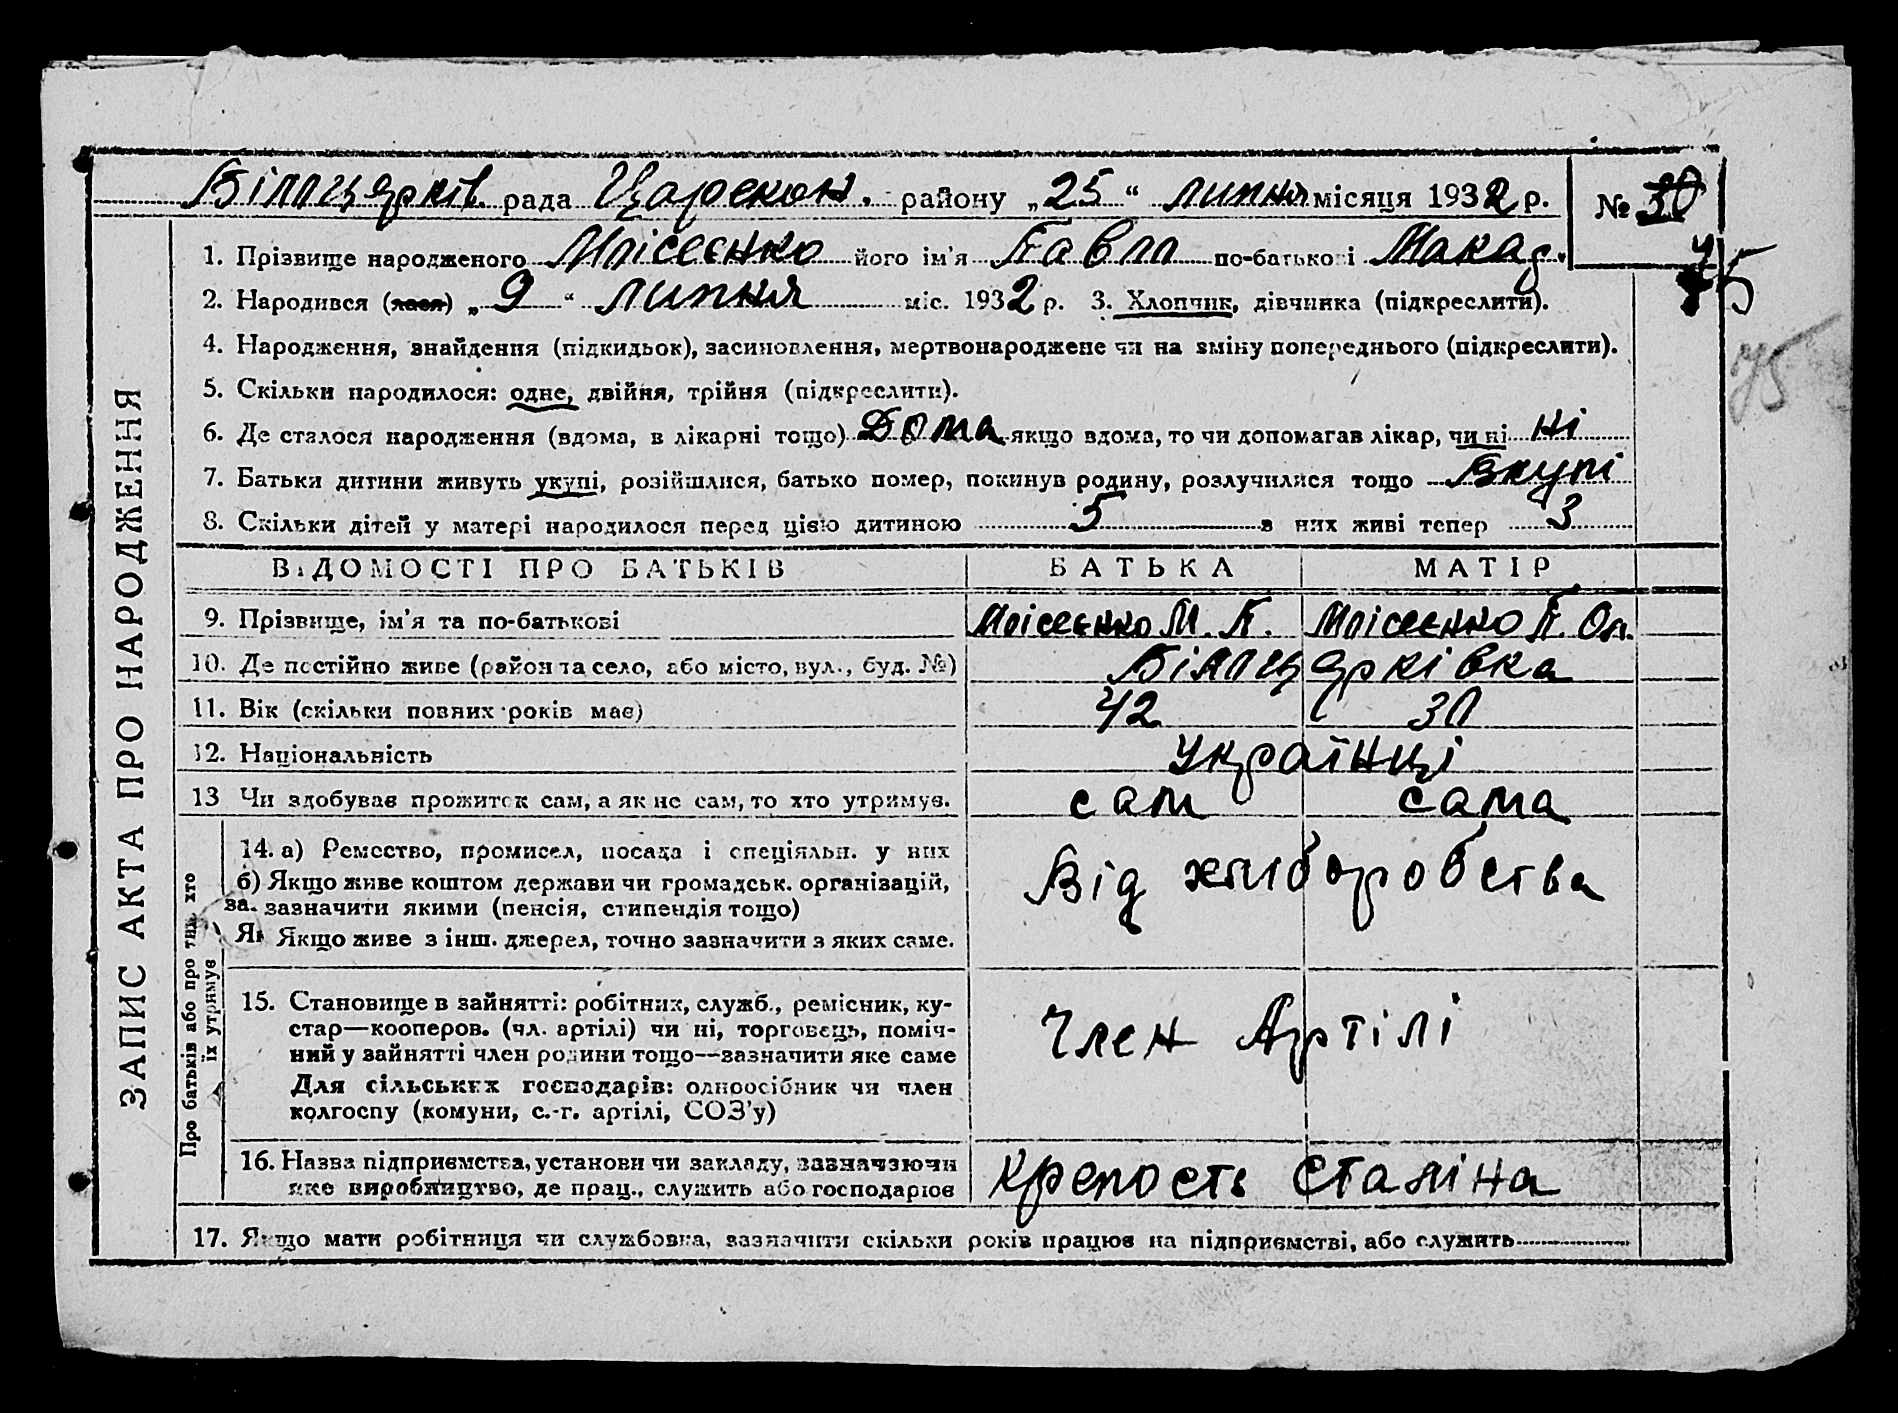 Білецярків. рада Царекон. району „25“ липня місяця 1932 р. № 30
45
1. Прізвище народженого Моісеєнко його ім'я Павло по-батькові Макар.
2. Народився (лася) „9“ липня міс. 1932 р. 3. Хлопчик, дівчинка (підкреслити).
4. Народження, знайдення (підкидьок), засиновлення, мертвонароджене чи на зміну попереднього (підкреслити).
75
5. Скільки народилося: одне, двійня, трійня (підкреслити).
6. Де сталося народження (вдома, в лікарні тощо) Дома якщо вдома, то чи допомагав лікар, чи ні ні
7. Батьки дитини живуть укупі, розійшлися, батько помер, покинув родину, розлучилися тощо Вкупі
8. Скільки дітей у матері народилося перед цією дитиною 5 з них живі тепер 3
ЗАПИС АКТА ПРО НАРОДЖЕННЯ
ВІДОМОСТІ ПРО БАТЬКІВ БАТЬКА МАТІР
9. Прізвище, ім'я та по-батькові Моісеєнко М. П. Моісеєнко П. Ол.
10. Де постійно живе (район та село, або місто, вул., буд. №)
11. Вік (скільки повних років має) 42 30
12. Національність Українці
13 Чи здобуває прожиток сам, а як не сам, то хто утримує. сам сама
Про батьків або про тих, хто їх утримує
14. а) Ремество, промисел, посада і спеціяльн. у них Від хліборобства
б) Якщо живе коштом держави чи громадськ. організацій,
за. зазначити якими (пенсія, стипендія тощо)
Як Якщо живе з інш. джерел, точно зазначити з яких саме.
15. Становище в зайнятті: робітник, служб., ремісник, ку-
стар—кооперов. (чл. артілі) чи ні, торговець, поміч-
ний у зайнятті член родини тощо—зазначити яке саме
Для сільських господарів: одноосібник чи член
колгоспу (комуни, с.-г. артілі, СОЗ'у)
Член Артілі
16. Назва підприємства, установи чи закладу, зазначаючи
яке виробництво, де прац., служить або господарює
Крепость Сталіна
17. Якщо мати робітниця чи службовка, зазначити скільки років працює на підприємстві, або служить